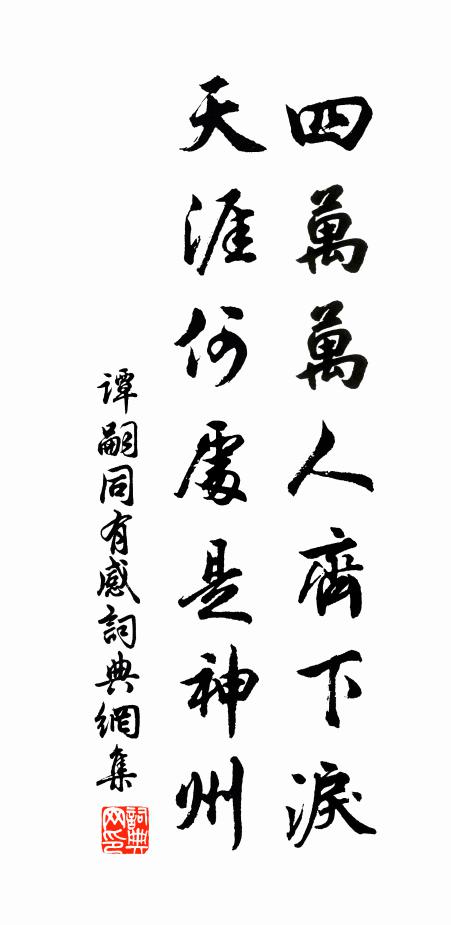 四萬萬人齊下淚
天涯何處是神州
譚嗣同有感詞典網集
詞典网印